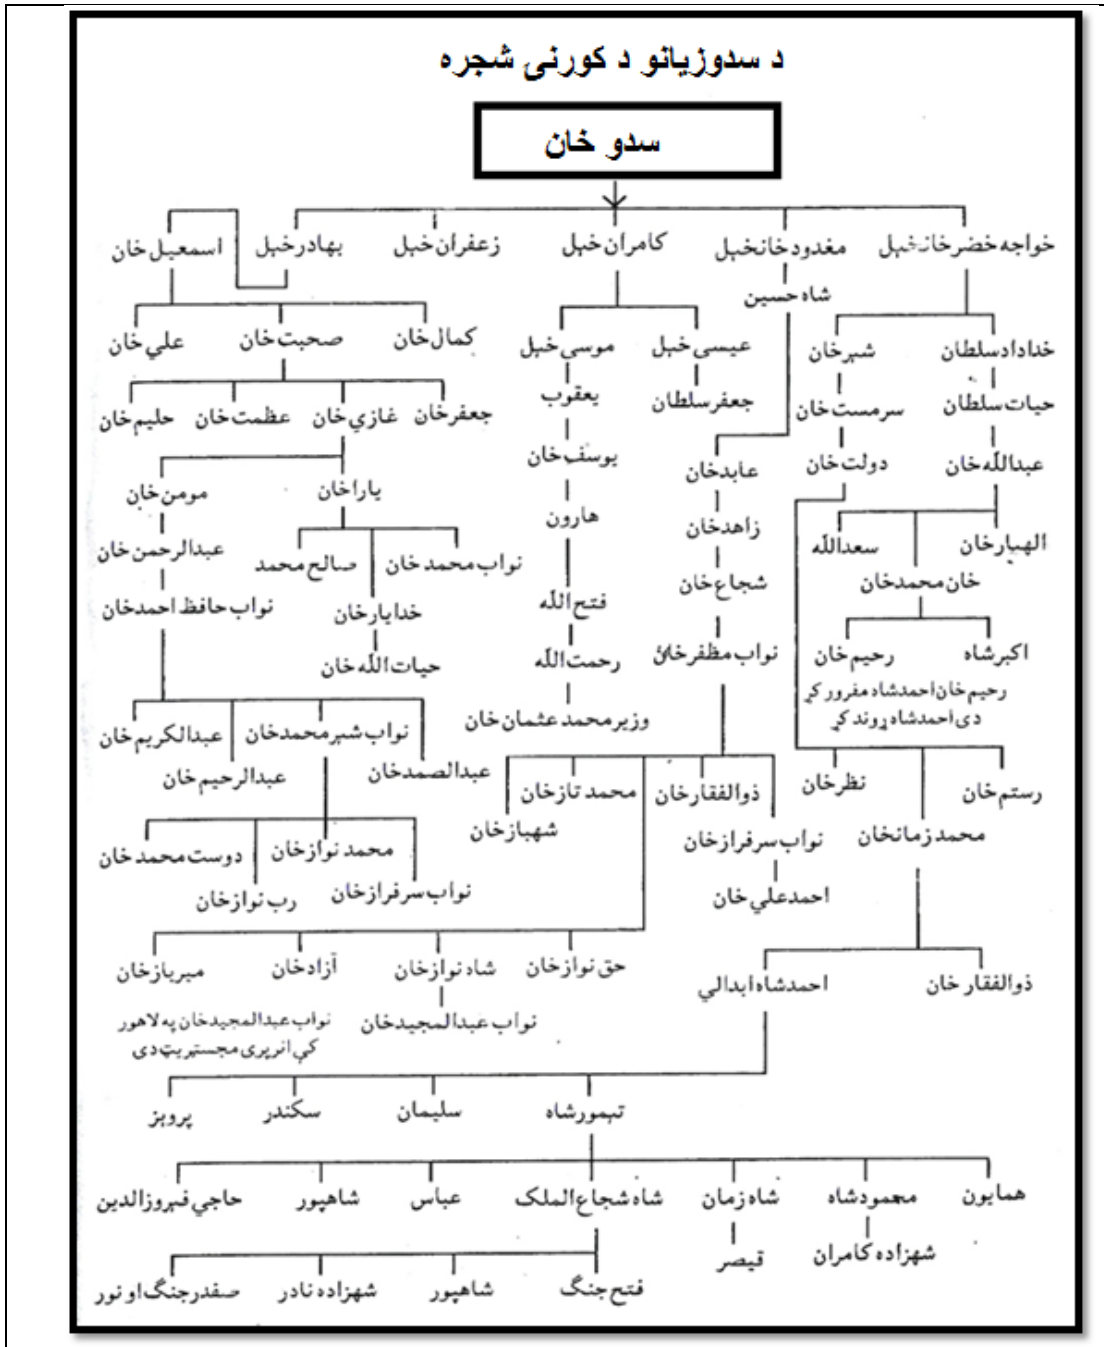 د سدوزیانو د کورنۍ شجره
سدو خان
خواجه خضرخانخېل
مغدودخانخېل
کامران خېل
زعفران خېل
بهادرخېل
اسمعیل خان
شاه حسین
خدادادسلطان
شېرخان
عیسی خېل
موسی خېل
کمال خان
صحبت خان
علي خان
حیات سلطان
سرمست خان
جعفرسلطان
یعقوب
جعفرخان
غازي خان
عظمت خان
حلیم خان
عبدالله خان
دولت خان
عابدخان
یوسف خان
یاراخان
مومن خان
الهیارخان
سعدالله
زاهدخان
هارون
نواب محمدخان
صالح محمد
عبدالرحمن خان
خان محمدخان
شجاع خان
فتح الله
خدایارخان
نواب حافظ احمدخان
اکبرشاه
رحیم خان
نواب مظفرخان
رحمت الله
حیات الله خان
رحیم خان احمدشاه مفرور کړ
دی احمدشاه ړوند کړ
وزیرمحمدعثمان خان
نواب شېرمحمدخان
عبدالکریم خان
عبدالصمدخان
عبدالرحیم خان
رستم خان
نظرخان
ذوالفقارخان
محمد تازخان
شهبازخان
محمدزمانخان
نواب سرفرازخان
محمدنوازخان
دوست محمدخان
احمدعلي خان
نواب سرفرازخان
رب نوازخان
حق نوازخان
شاه نوازخان
آزادخان
میربازخان
ذوالفقارخان
احمدشاه ابدالي
نواب عبدالمجیدخان
نواب عبدالمجیدخان په لاهور
کې انریری مجستریټ دی
تېمورشاه
سلیمان
سکندر
پرویز
همایون
محمودشاه
شاه زمان
شاه شجاع الملک
عباس
شاهپور
حاجي فیروزالدین
شهزاده کامران
قیصر
فتح جنگ
شاهپور
شهزاده نادر
صفدرجنگ او نور